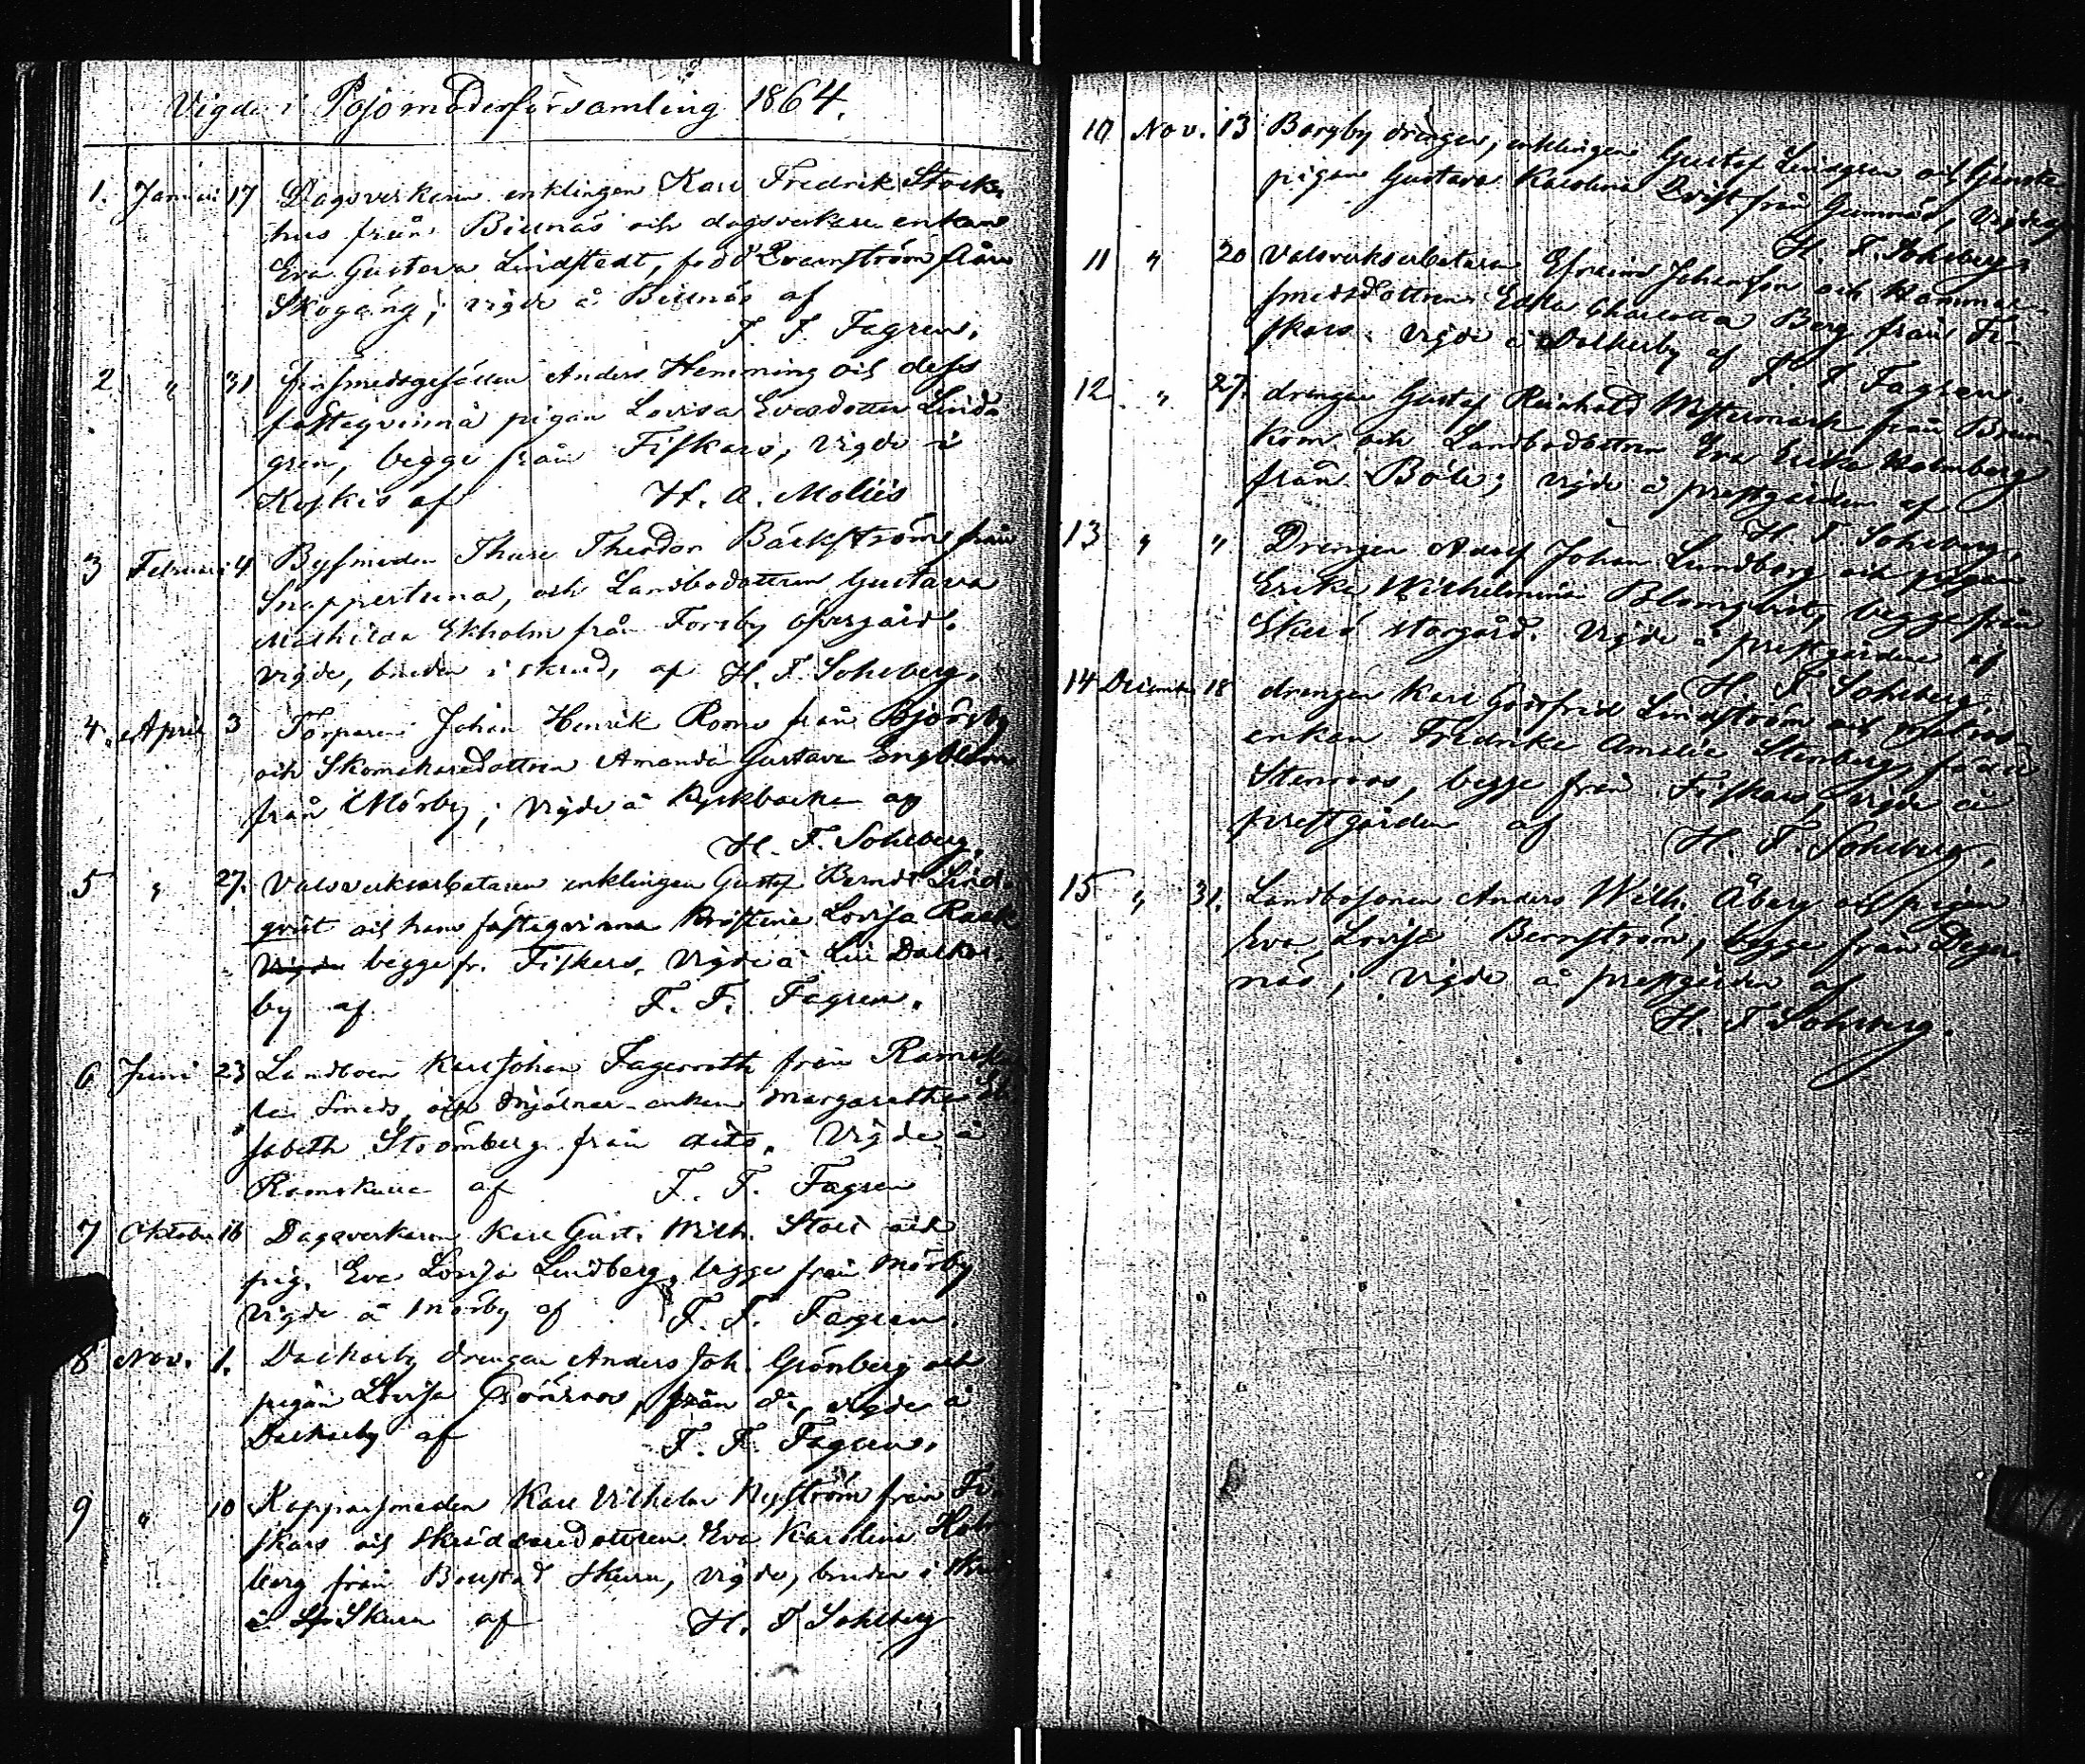 Vigde i Pojo moderförsamling 1864.
1. Januari 17 Dagsverkaren enklingen Karl Fredrik Stock-
hus från Billnäs och dagsverkare enkan
Eva Gustava Lindstedt, född från
Skogäng; vigde å Billnäs af
F. F. Fagren.
2 " 31 finsmedsgesällen Anders Hemming och dess
fästeqvinna pigan Lovisa Evasdotter Lind-
gren, begge från Fiskars, vigde i
Koskis af H. A. Moliis
3 Februari 4 Bysmeden Thure Theodor Bäckström från
Snappertuna, och Landbodottren Gustava
Mathilda Ekholm från Forsby öfvergård.
vigde, bruden i skrud, af H. F. Sohlberg.
4. April 3 Torparen Johan Henrik Roms från Björsby
och Skomakaredottren Amanda Gustava Engblom
från Mörby; vigde å Kyrkbacka af
H. F. Sohlberg.
5 " 27. Valsverksarbetaren enklingen Gustaf Berndt Lind-
qvist och hans fästeqvinna Kristina Lovisa Rask
Vigde begge fr. Fiskars, vigde å Dalkar-
by af F. F. Fagren.
6 Juni 23 Landboen Karl Johan Fagerroth från Ramsku-
la Smeds, och mjölnare-enkan Margaretha Eli-
sabeth Strömberg från dito. Vigde å
Ramskulla af F. F. Fagren
7 Oktober 16 Dagsverkaren Karl Gust. Wilh. Ståhl och
pig. Eva Lovisa Lindberg, begge från Mörby
vigde å Mörby af F. F. Fagren.
8 Nov. 1. Dalkarby drengen Anders Joh. Grönberg och
pigan Lovisa Grönroos, från d:o, vigde å
Dalkarby af F. F. Fagren.
9 " 10 Kopparsmeden Karl Vilhelm Nyström från Fi-
skars och Skräddaredottren Eva Karolina Holm-
berg från Bollstad Skuru, vigde, bruden i skrud
å Skuru af H. F. Sohlberg
10 Nov. 13 Borgby drengen, enklingen Gustaf Lindgren och tjenste-
pigan Gustava Karolina Qvist från Gumnäs, Vigde af
H. F. Sohlberg.
11 " 20 Valsverksarbetaren Efraim Johansson och Hammar-
smedsdottren Edla Charlotta Berg från Fi-
skars. Vigde i Dalkarby af F. F. Fagren.
12 " 27. drengen Gustaf Reinhold Westermark från Brun-
kom och Landbodottren Eva Erika Holmberg
från Böle; vigde å prestgården af
H. F. Sohlberg.
13 " " Drengen Adolf Johan Lundberg och pigan
Erika Wilhelmina Blomqvist, begge från
Ekerö storgård. Vigde å prestgården af
H. F. Sohlberg.
14 December 18 drengen Karl Gottfrid Lindström och
enkan Fredrika Amalia Stenberg, född
Stenroos, begge från Fiskars, vigde å
prestgården af H. F. Sohlberg.
15 " 31. Landbosonen Anders Wilh. Åberg och pigan
Eva Lovisa Bernström, begge från Deger-
näs; vigde å prestgården af
H. F. Sohlberg.